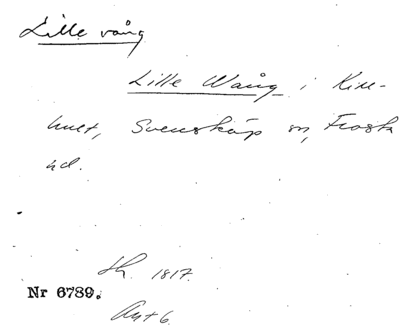 Lille vång
Lille Wång i Kill-
hult, Svensköp sn, Frosta
hd.
Sk. 1817.
Nr 6789.
Avt 6.